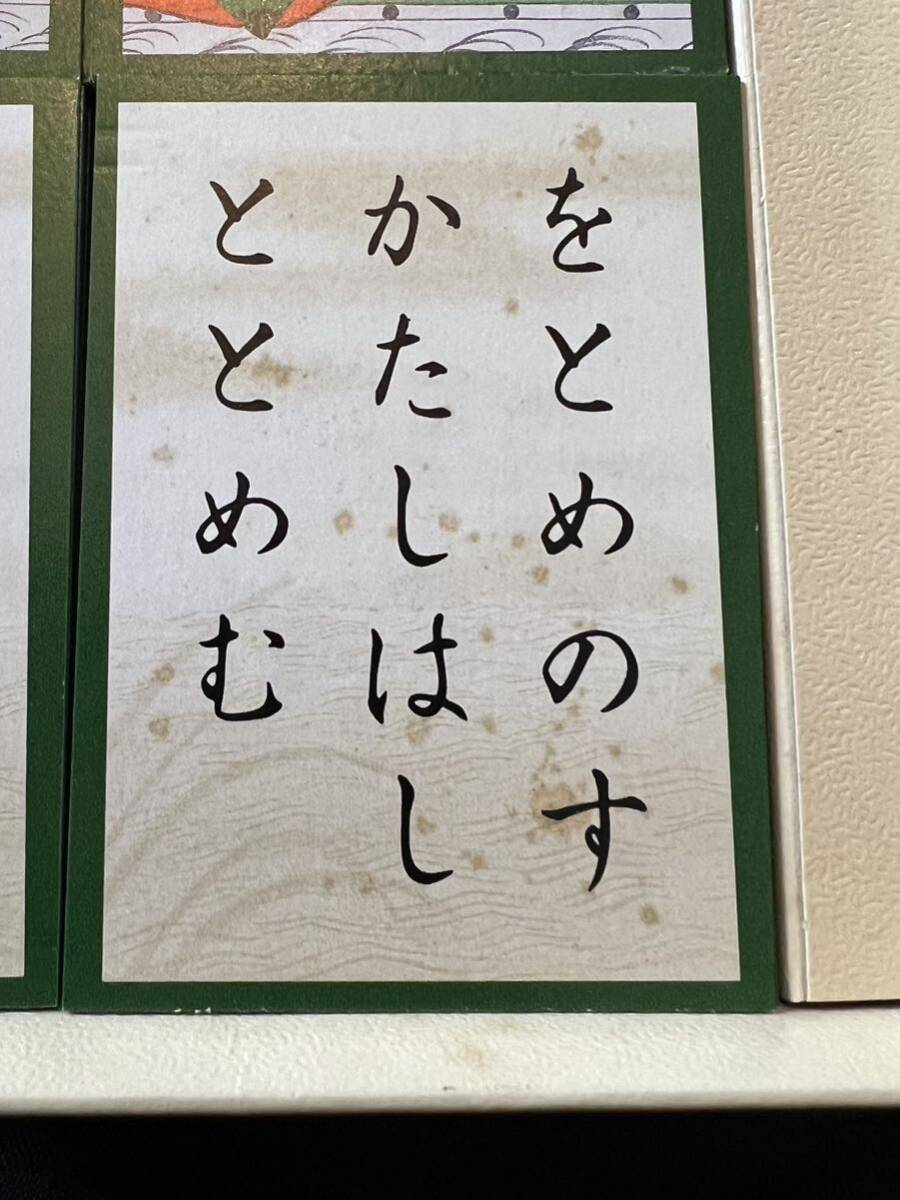 をとめのす
かたしはし
ととめむ